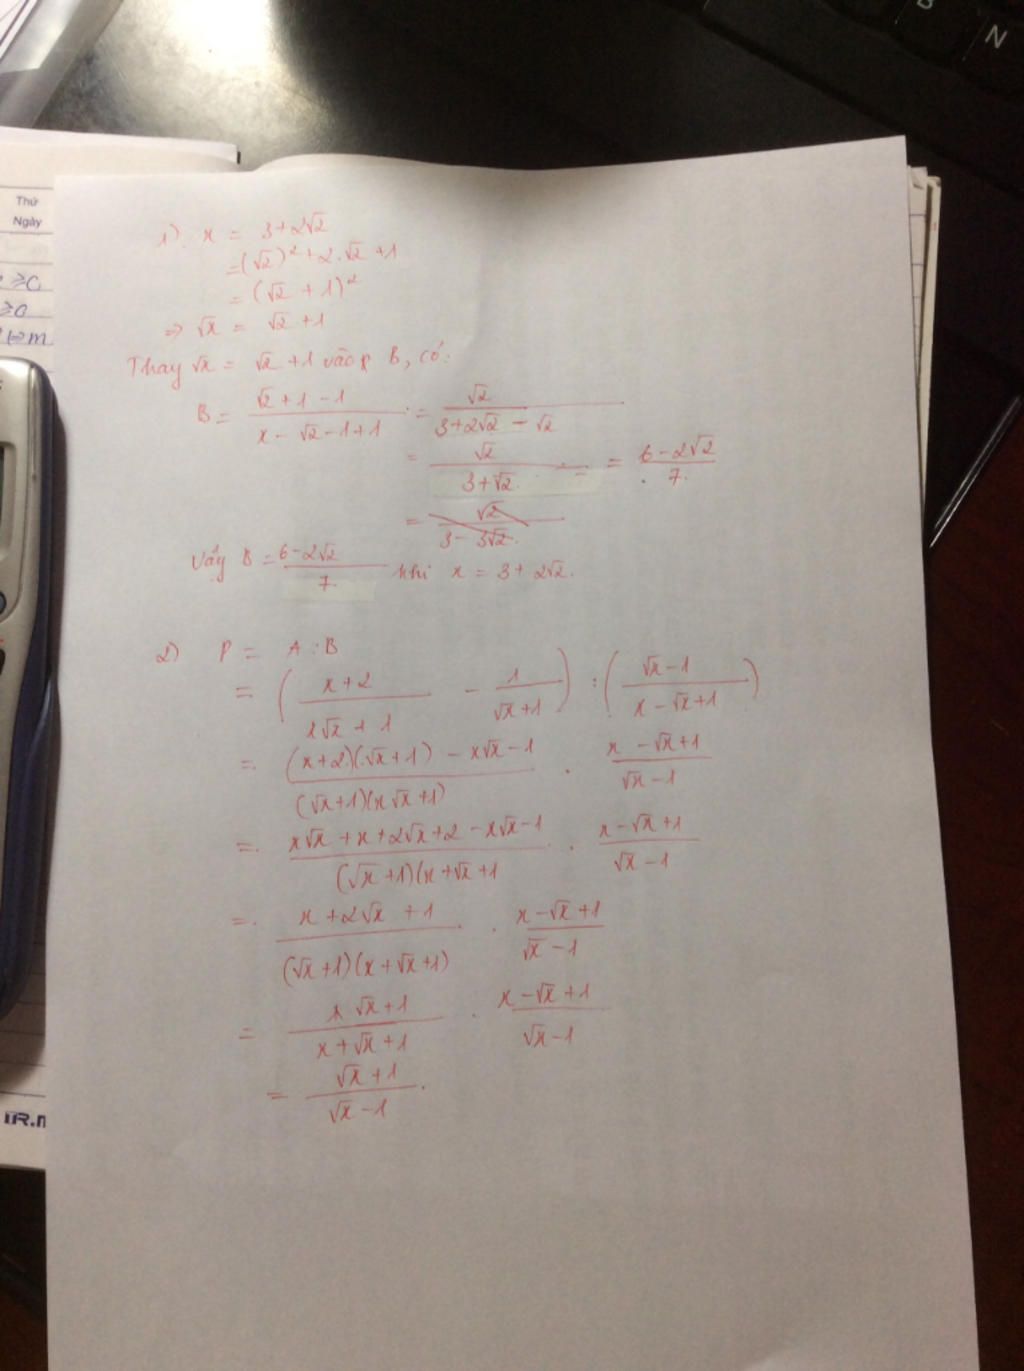 Thứ
Ngày
≥0
≥0
B
N
1). x = 3+2√2
=(√2)²+2.√2+1
= (√2 + 1)²
⇒ √x = √2 +1
Thay √x = √2 +1 vào B, có:
B = (√2+1-1)/(x-√2-1+1) = √2/(3+2√2-√2)
= √2/(3+√2) = = (6-2√2)/7
= √2/(3-3√2)
Vậy B = (6-2√2)/7 khi x = 3+2√2.
2) P = A:B
= ((x+2)/(x√x+1) - 1/(√x+1)) : ((√x-1)/(x-√x+1))
= ((x+2)(√x+1) - x√x-1)/((√x+1)(x√x+1)) . (x-√x+1)/(√x-1)
= (x√x+x+2√x+2-x√x-1)/((√x+1)(x+√x+1) . (x-√x+1)/(√x-1)
= (x+2√x+1)/((√x+1)(x+√x+1)) . (x-√x+1)/(√x-1)
= (√x+1)/(x+√x+1) . (x-√x+1)/(√x-1)
= (√x+1)/(√x-1).